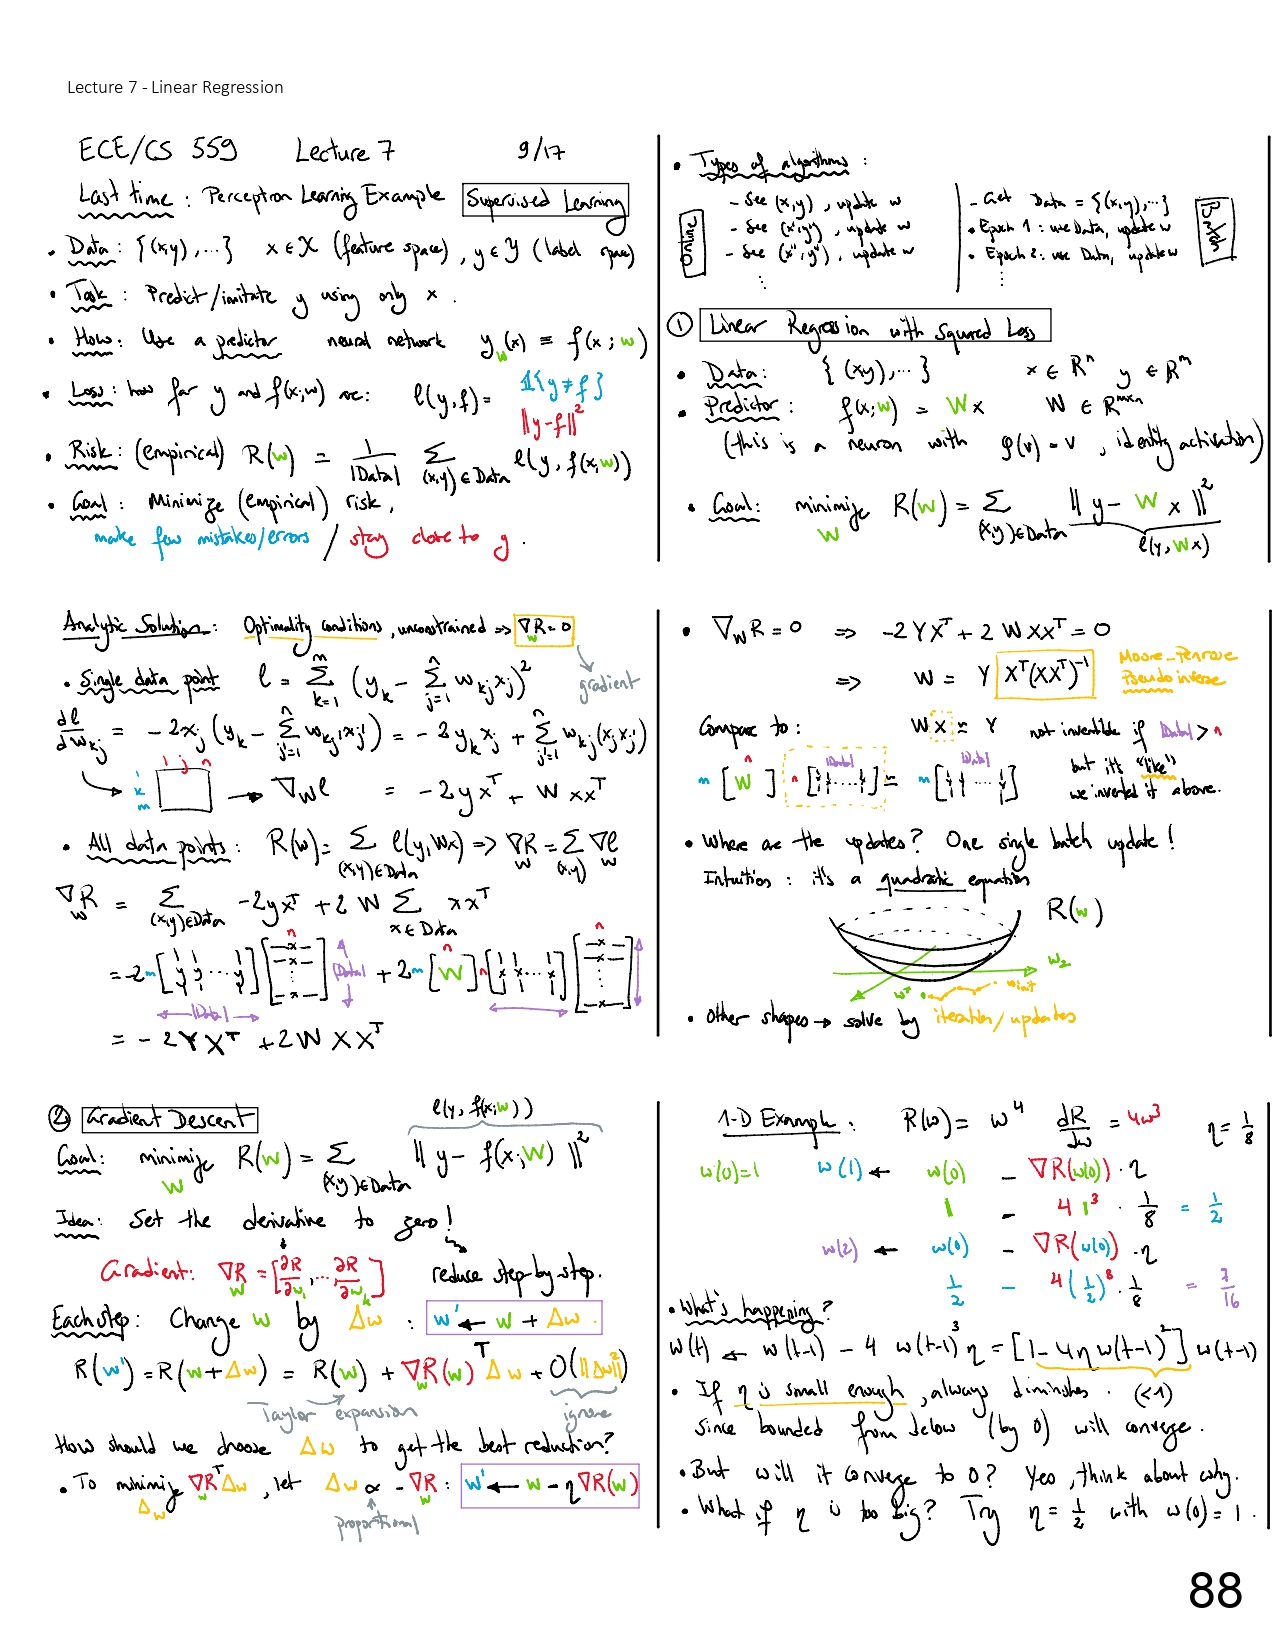 Lecture 7 - Linear Regression
ECE/CS 559 Lecture 7 9/17
Last time : Perceptron Learning Example Supervised Learning
• Data : {(x,y),...} x ∈ X (feature space), y ∈ Y (label space)
• Task : Predict/imitate y using only x .
• How : Use a predictor neural network y_w(x) ≡ f(x ; w)
• Loss : how far y and f(x;w) are: ℓ(y,f) = 1{y≠f}
||y-f||²
• Risk : (empirical) R(w) = 1/|Data| Σ_(x,y)∈Data ℓ(y, f(x;w))
• Goal : Minimize (empirical) risk,
make few mistakes/errors / stay close to y .
• Types of algorithms :
Online
- See (x,y) , update w
- See (x',y') , update w
- See (x'',y'') , update w
⋮
Batch
- Get Data = {(x,y),...}
• Epoch 1 : use Data, update w
• Epoch 2 : use Data, update w
⋮
① Linear Regression with Squared Loss
• Data : {(x,y),...} x ∈ R^n y ∈ R^m
• Predictor : f(x;w) = Wx W ∈ R^{m×n}
(this is a neuron with φ(v) = v , identity activation)
• Goal : minimize_W R(w) = Σ_(x,y)∈Data || y - W x ||²
ℓ(y, Wx)
Analytic Solution : Optimality conditions, unconstrained => ∇_w R = 0
gradient
• Single data point ℓ = Σ_{k=1}^m (y_k - Σ_{j=1}^n w_kj x_j)²
dℓ/dw_kj = -2x_j (y_k - Σ_{j'=1}^n w_kj' x_j') = -2 y_k x_j + Σ_{j'=1}^n w_kj (x_j x_j')
1 j n
1 k m → ∇_W ℓ = -2yx^T + W xx^T
• All data points : R(w) = Σ_(x,y)∈Data ℓ(y, Wx) => ∇_w R = Σ_(x,y) ∇_w ℓ
∇_w R = Σ_(x,y)∈Data -2yx^T + 2 W Σ_x∈Data xx^T
= -2 m [y y ... y] [-x- -x- ⋮ -x-] n |Data| + 2 m [W] n n [x x ... x] [-x- -x- ⋮ -x-] n
|Data|
= -2YX^T + 2W XX^T
• ∇_W R = 0 => -2YX^T + 2 W XX^T = 0
=> W = Y X^T(XX^T)^{-1} Moore-Penrose
Pseudo inverse
Compare to : W X = Y not invertible if |Data| > n
m [W] n n [ ... ] |Data| = m [ ... ] |Data| but it's "like"
we inverted it above.
• Where are the updates? One single batch update !
Intuition : it's a quadratic equation
R(w)
w₂
w* w init
• Other shapes → solve by iteration/updates
② Gradient Descent ℓ(y, f(x;w))
Goal : minimize_W R(w) = Σ_(x,y)∈Data || y - f(x;W) ||²
Idea : Set the derivative to zero!
Gradient : ∇_W R = [∂R/∂w₁, ... ∂R/∂w_k] reduce step-by-step.
Each step : Change w by Δw : w' ← w + Δw .
R(w') = R(w+Δw) = R(w) + ∇_w R(w)^T Δw + O(||Δw||²)
Taylor expansion ignore
How should we choose Δw to get the best reduction?
• To minimize_Δw ∇_w R^T Δw , let Δw ∝ -∇_w R : w' ← w - η∇R(w)
proportional
1-D Example : R(w) = w⁴ dR/dw = 4w³ η = 1/8
w(0)=1 w(1) ← w(0) - ∇R(w(0)) · η
1 - 4 1³ · 1/8 = 1/2
w(2) ← w(0) - ∇R(w(0)) · η
1/2 - 4(1/2)³ · 1/8 = 7/16
• What's happening?
w(t) ← w(t-1) - 4 w(t-1)³ η = [1 - 4η w(t-1)²] w(t-1)
• If η is small enough , always diminishes . (<1)
Since bounded from below (by 0) will converge .
• But will it converge to 0? Yes, think about why.
• What if η is too big? Try η = 1/2 with w(0) = 1 .
88